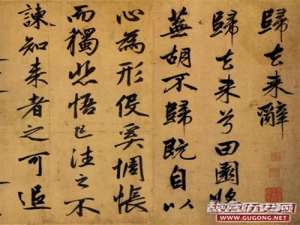 歸去来辭
歸去来兮田園將
蕪胡不歸既自以
心為形役奚惆悵
而獨悲悟已往之不
諫知来者之可追
WWW.GUGONG.NET